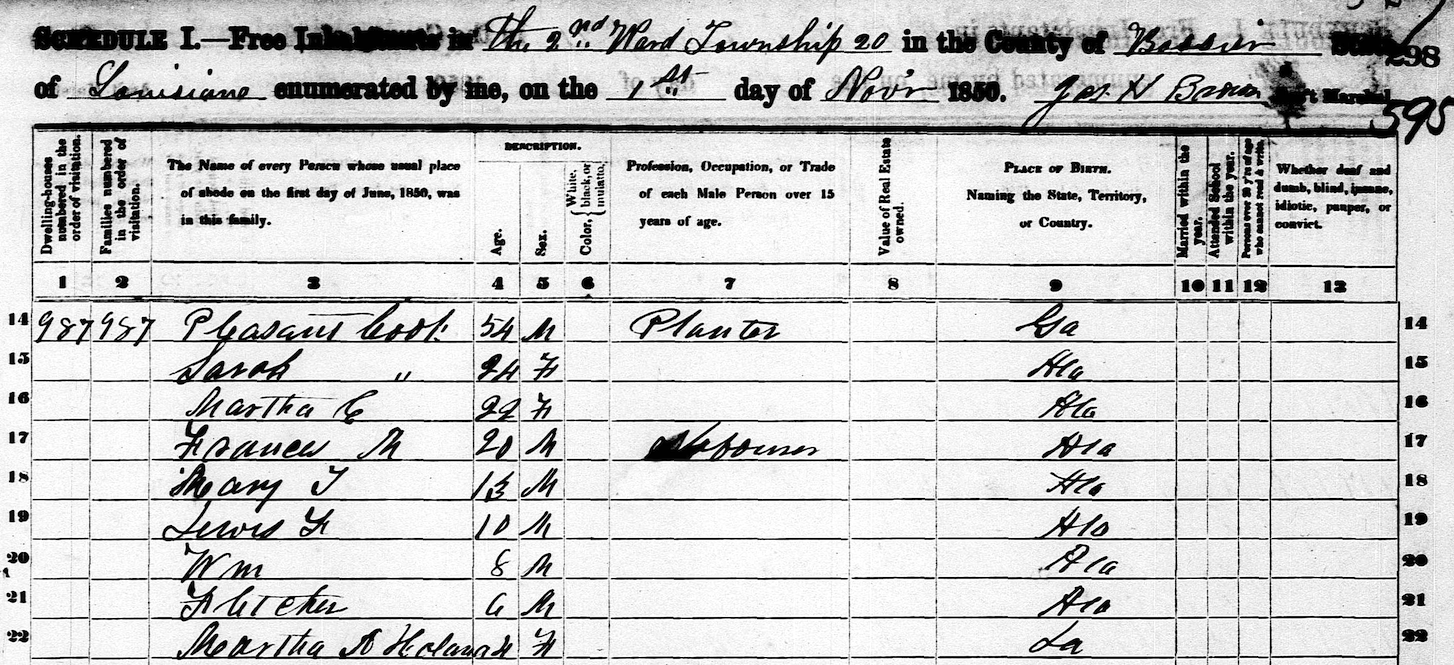 SCHEDULE I.—Free Inhabitants in the 2nd Ward Township 20 in the County of Bossier State 298
of Louisiana enumerated by me, on the 1st day of Novr 1850. Jas H Brown Ass't Marshal 595
DESCRIPTION.
Dwelling-houses numbered in the order of visitation.
Families numbered in the order of visitation.
The Name of every Person whose usual place
of abode on the first day of June, 1850, was
in this family.
Age.
Sex.
Color, White, black, or mulatto.
Profession, Occupation, or Trade
of each Male Person over 15
years of age.
Value of Real Estate owned.
PLACE OF BIRTH.
Naming the State, Territory,
or Country.
Married within the year.
Attended School within the year.
Persons over 20 y'rs of age who cannot read & write.
Whether deaf and
dumb, blind, insane,
idiotic, pauper, or
convict.
1 2 3 4 5 6 7 8 9 10 11 12 13
14 987 987 Pleasant Cook 54 M Planter Ga 14
15 Sarah " 24 F Ala 15
16 Martha C 22 F Ala 16
17 Frances M 20 M Labourer Ala 17
18 Mary T 13 M Ala 18
19 Lewis F 10 M Ala 19
20 Wm 8 M Ala 20
21 Fletcher 6 M Ala 21
22 Martha A 4 F La 22